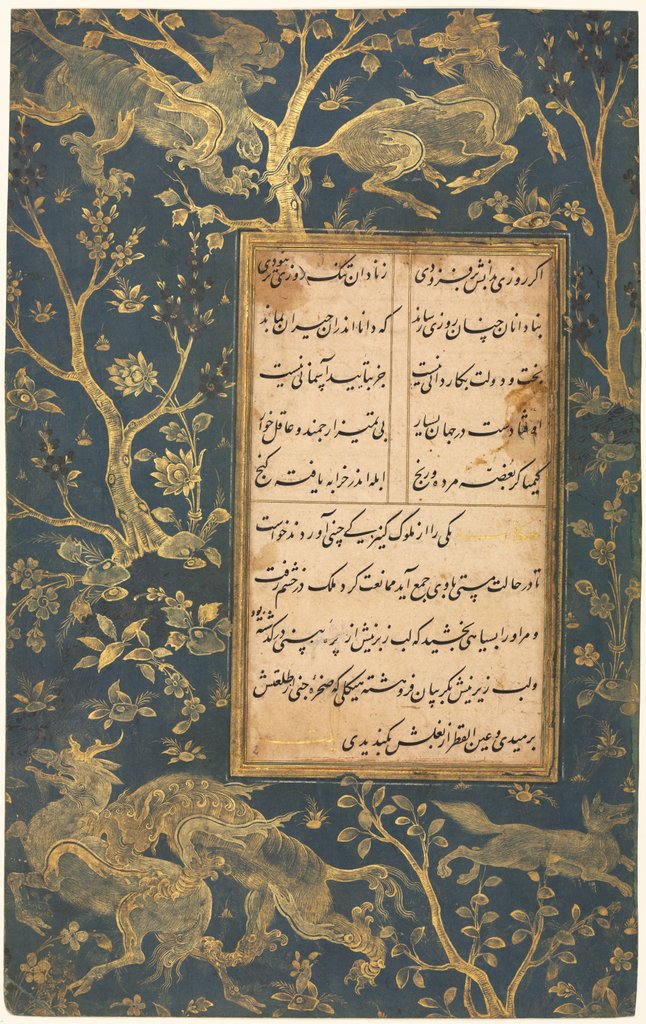 اکر روزی بدانش بر فزودی زنادان تنک روزی تر نبودی
بنادانان چنان روزی رساند که دانا اندران حیران بماند
بخت و دولت بکاردانی نیست جز بتایید آسمانی نیست
اوفتادست در جهان بسیار بی تمیز ارجمند و عاقل خوار
کیمیاکر بغصه مرده و رنج ابله اندر خرابه یافته کنج
حکایت یکی را از ملوک کنیزکی چینی آوردند خواست
تا در حالت مستی با وی جمع آید ممانعت کرد ملک در خشم رفت
و مر او را بسیاهی بخشید که لب زبرینش از پره بینی درکذشته بود
ولب زیرینش بکریبان فروهشته هیکلی که صخره جنی از طلعتش
برمیدی و عین القطر از بغلش بکندیدی